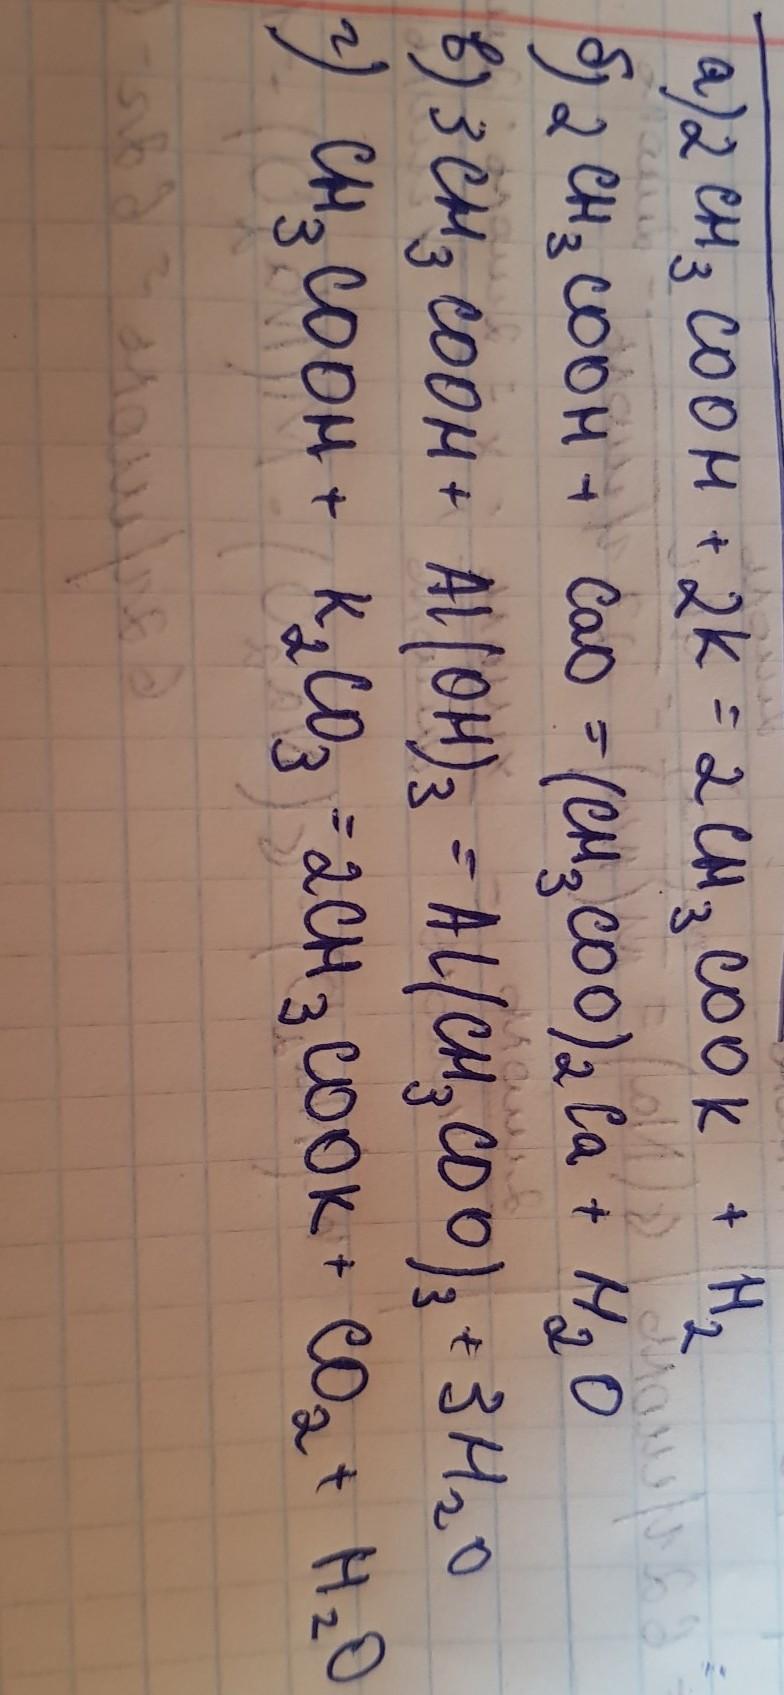 а) 2CH₃COOH + 2K = 2CH₃COOK + H₂
б) 2CH₃COOH + CaO = (CH₃COO)₂Ca + H₂O
в) 3CH₃COOH + Al(OH)₃ = Al(CH₃COO)₃ + 3H₂O
г) CH₃COOH + K₂CO₃ = 2CH₃COOK + CO₂ + H₂O